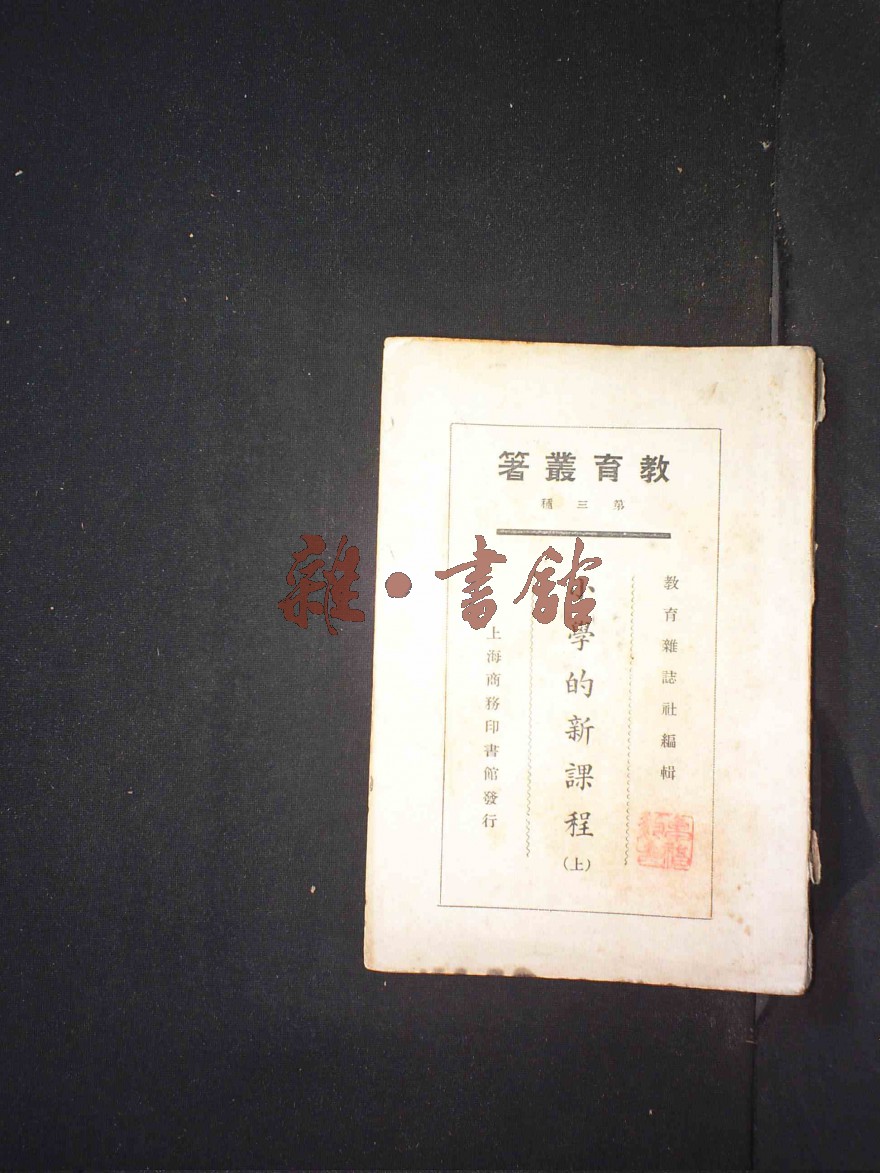 教育叢著
第三種
教育雜誌社編輯
小學的新課程
(上)
上海商務印書館發行
雜·書館